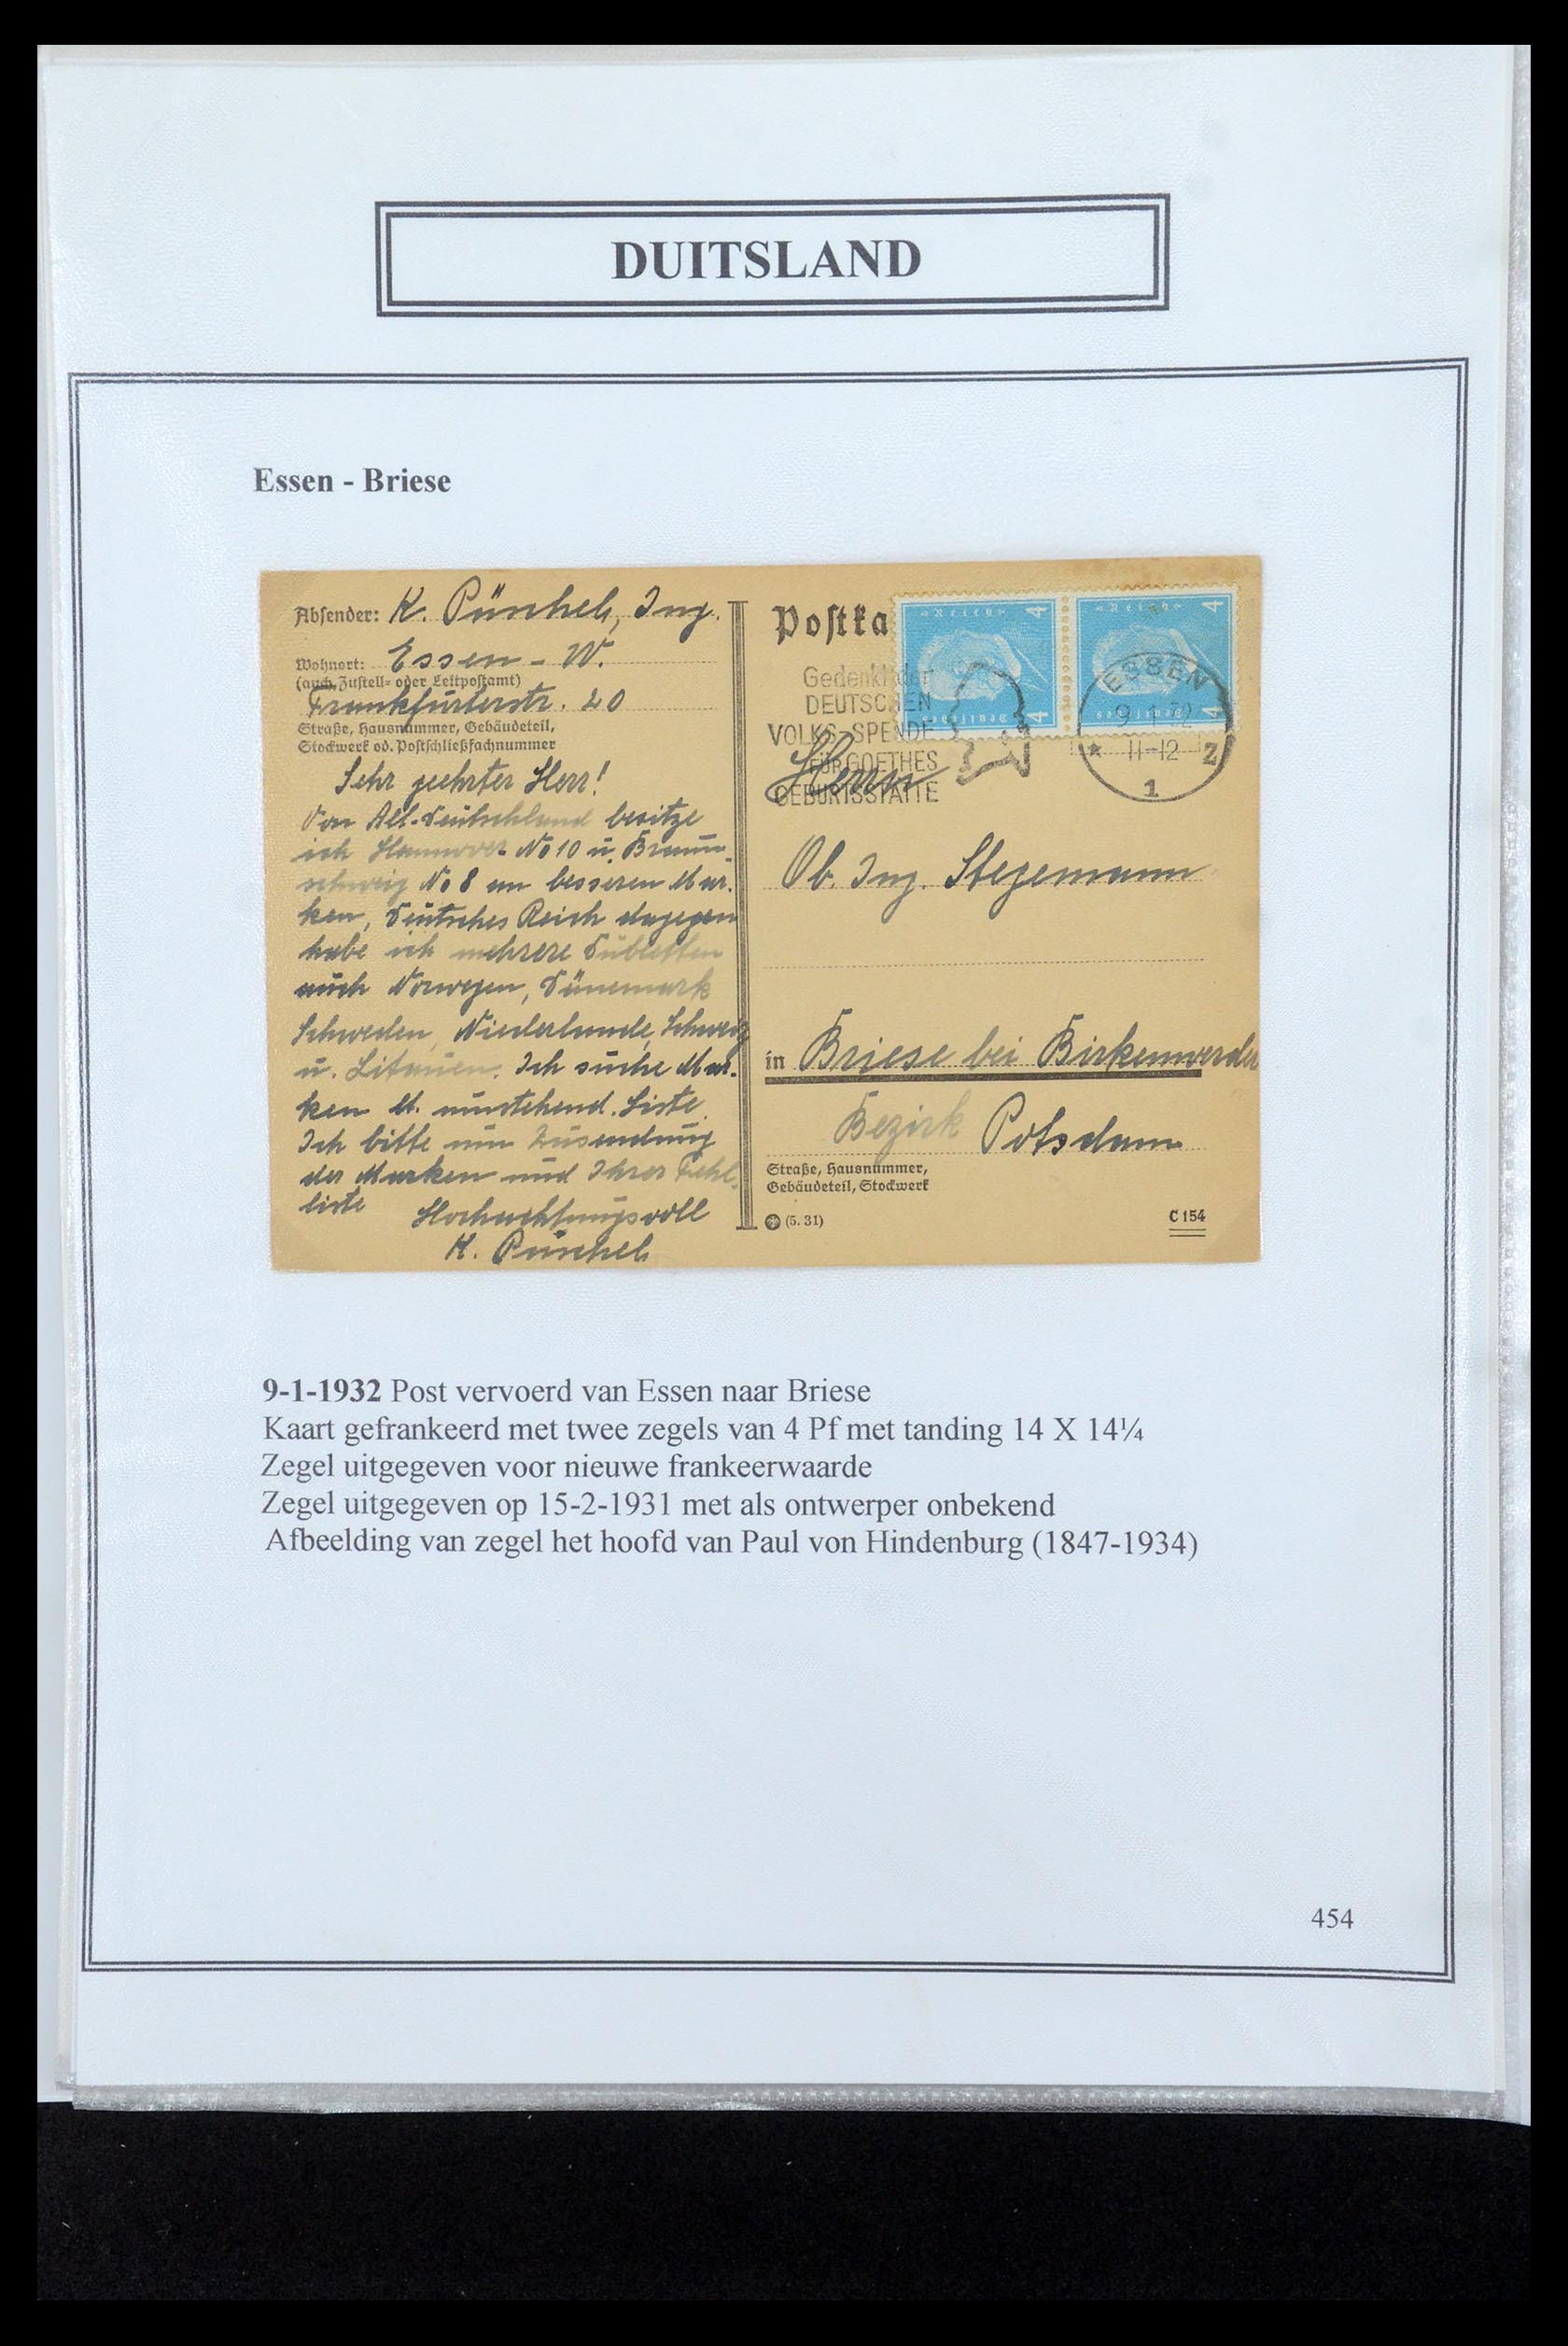 DUITSLAND
Essen - Briese
Absender: K. Püschel, Ing.
Wohnort: Essen - W.
(auch Zustell- oder Leitpostamt)
Frankfurterstr. 20
Straße, Hausnummer, Gebäudeteil,
Stockwerk od. Postschließfachnummer
Sehr geehrter Herr!
Von Alt-Deutschland besitze
ich Hannover No 10 u. Braun-
schweig No 8 an besseren Mar-
ken, Deutsches Reich dagegen
habe ich mehrere Dubletten
auch Norwegen, Dänemark
Schweden, Niederlande, Schweiz
u. Litauen. Ich suche Mar-
ken lt. Liste.
Ich bitte um Zusendung
der Marken und Ihrer Fehl-
liste
Hochachtungsvoll
K. Püschel
Postka
Reich 4
Deutsches 4
Reich 4
Deutsches 4
Gedenkt der
DEUTSCHEN
VOLKS-SPENDE
FÜR GOETHES
GEBURTSSTÄTTE
ESSEN
9.1.32
* 11-12 Z
1
Herrn
Ob. Ing. Stegemann
in Briese bei Birkenwerder
Bezirk Potsdam
Straße, Hausnummer,
Gebäudeteil, Stockwerk
(5. 31)
C 154
9-1-1932 Post vervoerd van Essen naar Briese
Kaart gefrankeerd met twee zegels van 4 Pf met tanding 14 X 14¼
Zegel uitgegeven voor nieuwe frankeerwaarde
Zegel uitgegeven op 15-2-1931 met als ontwerper onbekend
Afbeelding van zegel het hoofd van Paul von Hindenburg (1847-1934)
454